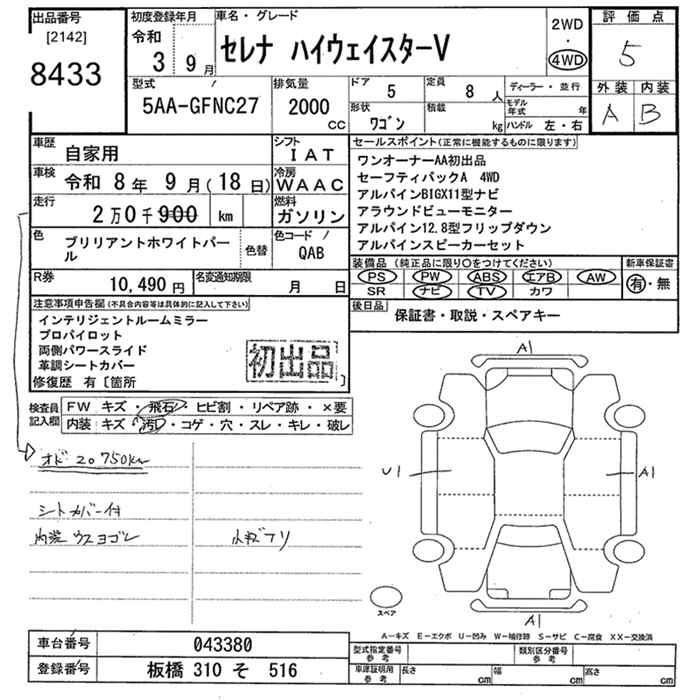 出品番号
[2142]
8433
初度登録年月
令和
3 9月
車名・グレード
セレナ ハイウェイスターV
2WD
・
4WD
評価点
5
外装 内装
A B
型式
5AA-GFNC27
排気量
2000
CC
ドア 5
定員 8 人
形状 ワゴン
積載 kg
ディーラー・並行
モデル年式 年
ハンドル 左・右
車歴 自家用
シフト IAT
車検 令和 8年 9月(18日)
冷房 WAAC
走行 2万0千900 km
燃料 ガソリン
色 ブリリアントホワイトパール
色替
色コード QAB
R券 10,490円
名変通知期限 月 日
セールスポイント(正常に機能するものに限ります)
ワンオーナーAA初出品
セーフティパックA 4WD
アルパインBIGX11型ナビ
アラウンドビューモニター
アルパイン12.8型フリップダウン
アルパインスピーカーセット
装備品(純正品に限り○をつけてください)
PS PW ABS エアB AW
SR ナビ TV カワ
新車保証書
有・無
後日品 保証書・取説・スペアキー
注意事項申告欄(不具合内容等は具体的に記入して下さい)
インテリジェントルームミラー
プロパイロット
両側パワースライド
革調シートカバー
修復歴 有〔箇所 〕
初出品
検査員記入欄
FW キズ・飛石・ヒビ割・リペア跡・×要
内装 キズ・汚レ・コゲ・穴・スレ・キレ・破レ
オド 20750km
シートカバー付
内装ウスヨゴレ
A1
U1
A1
A1
スペア
A-キズ E-エクボ U-凹み W-補修跡 S-サビ C-腐食 XX-交換済
車台番号 043380
登録番号 板橋 310 そ 516
型式指定番号 参考
類別区分番号 参考
車庫証明用 参考
長さ cm
幅 cm
高さ cm